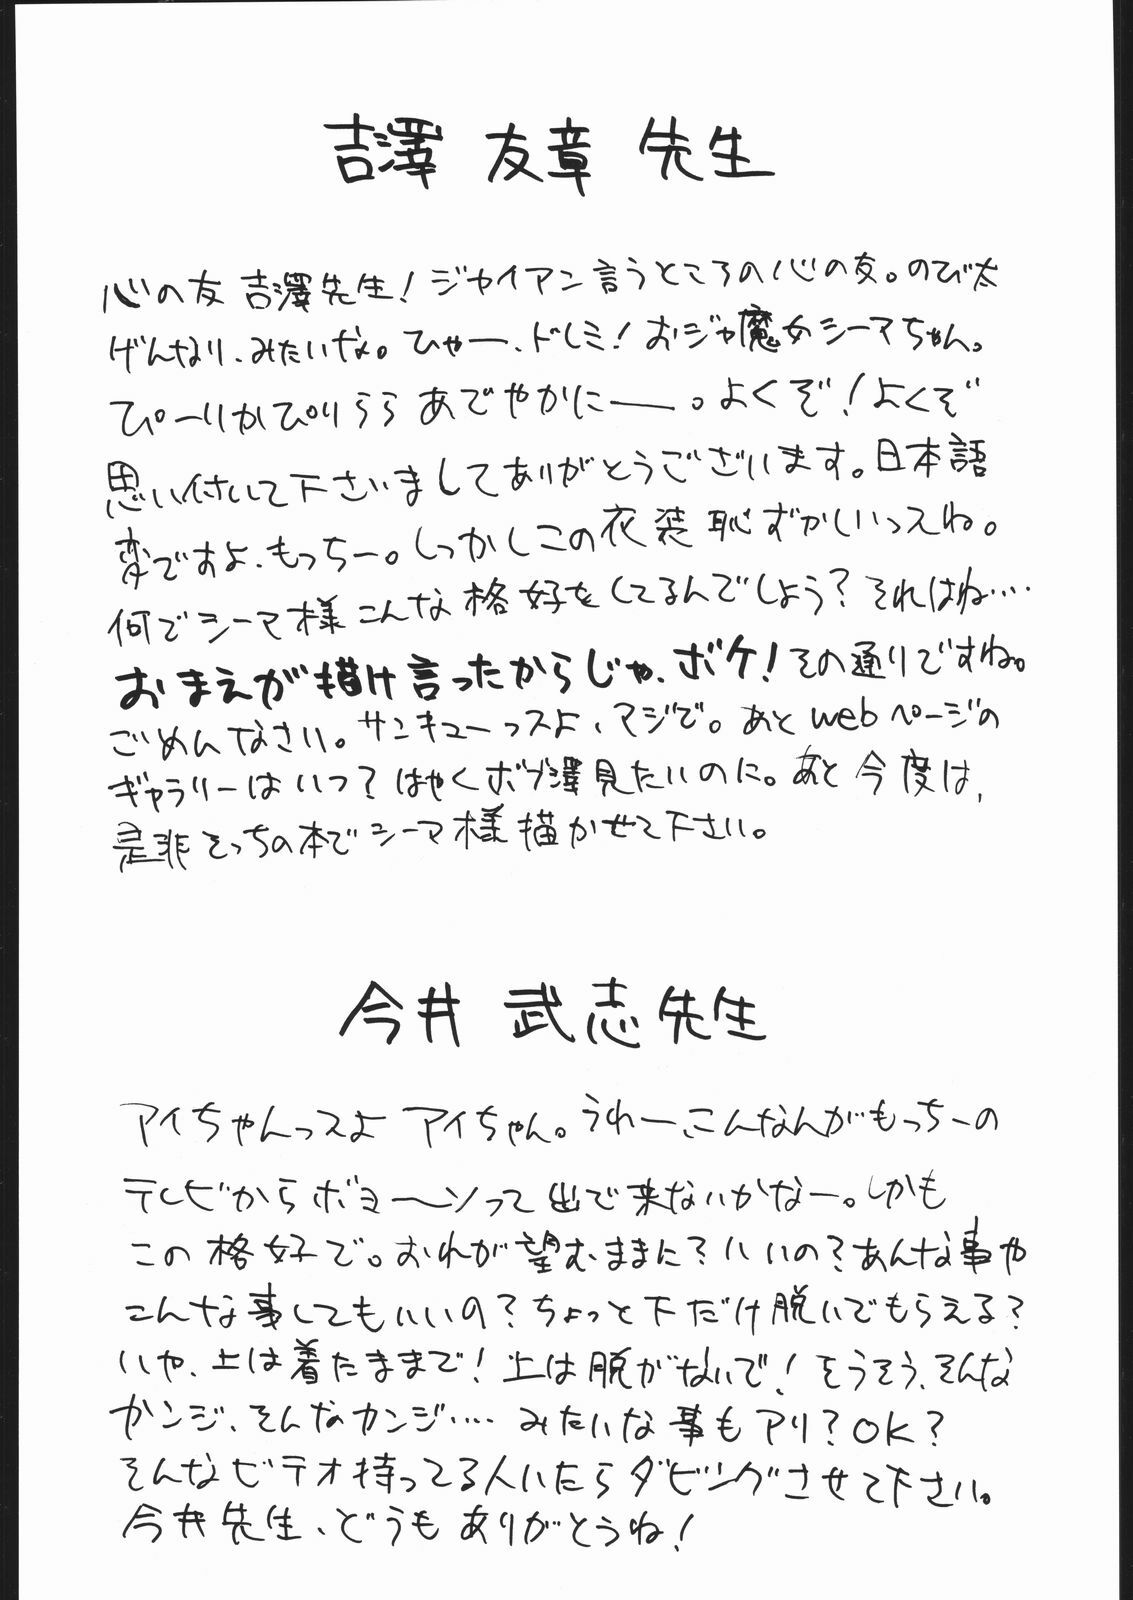 吉澤 友章 先生
心の友 吉澤先生!ジャイアン言うところの心の友。のび太
げんなり、みたいな。ひゃー、ドレミ!おジャ魔女シーマちゃん。
ぴーりかぴりらら あでやかにー。よくぞ!よくぞ
思い付いて下さいましてありがとうございます。日本語
変ですよ、もっちー。しっかしこの衣装恥ずかしいっスね。
何でシーマ様こんな格好をしてるんでしょう?それはね‥‥
おまえが描け言ったからじゃ、ボケ!その通りですね。
ごめんなさい。サンキューっスよ、マジで。あとwebページの
ギャラリーはいつ?はやくボブ澤見たいのに。あと今度は、
是非そっちの本でシーマ様描かせて下さい。
今井 武志先生
アイちゃんっスよ アイちゃん。うれー、こんなんがもっちーの
テレビからボヨ〜ンって出て来ないかなー。しかも
この格好で。おれが望むままに?いいの?あんな事や
こんな事してもいいの?ちょっと下だけ脱いでもらえる?
いや、上は着たままで!上は脱がないで!そうそう、そんな
カンジ、そんなカンジ‥‥みたいな事もアリ?OK?
そんなビデオ持ってる人いたらダビングさせて下さい。
今井先生、どうもありがとうね!